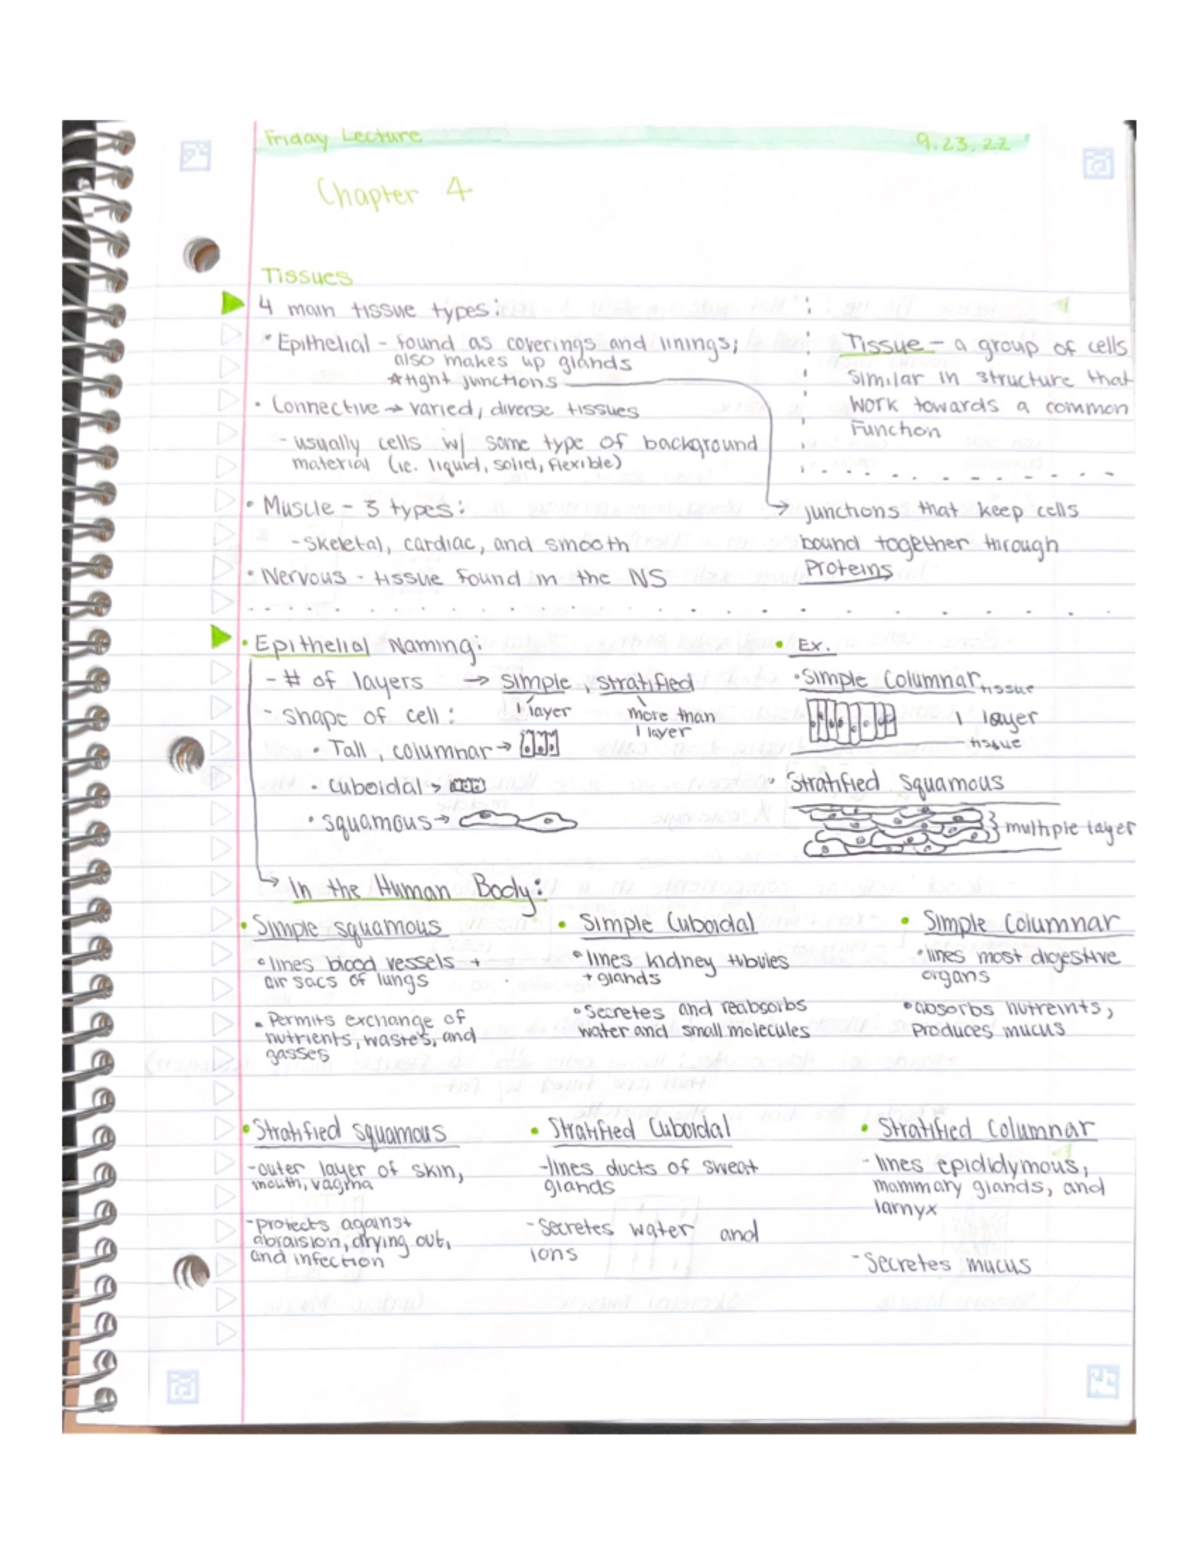 Friday Lecture 9.23.22
Chapter 4
Tissues
4 main tissue types:
• Epithelial - found as coverings and linings;
also makes up glands
*tight junctions
• Connective → varied, diverse tissues
- usually cells w/ some type of background
material (ie. liquid, solid, flexible)
• Muscle - 3 types:
- Skeletal, cardiac, and smooth
• Nervous - tissue found in the NS
Tissue - a group of cells
similar in structure that
work towards a common
Function
→ junctions that keep cells
bound together through
Proteins
• Epithelial Naming:
- # of layers → simple, stratified
1 layer
more than
1 layer
- Shape of cell:
• Tall, columnar →
• cuboidal →
• squamous →
• Ex.
• Simple Columnar
tissue
1 layer
tissue
• Stratified Squamous
} multiple layer
→ In the Human Body:
• Simple squamous
• lines blood vessels +
air sacs of lungs
• Permits exchange of
nutrients, wastes, and
gasses
• Simple Cuboidal
• lines kidney tubules
+ glands
• Secretes and reabsorbs
water and small molecules
• Simple Columnar
• lines most digestive
organs
• absorbs nutreints,
produces mucus
• Stratified squamous
- outer layer of skin,
mouth, vagina
- protects against
abraision, drying out,
and infection
• Stratified Cuboidal
- lines ducts of sweat
glands
- Secretes water and
ions
• Stratified Columnar
- lines epididymous,
mammary glands, and
larnyx
- Secretes mucus